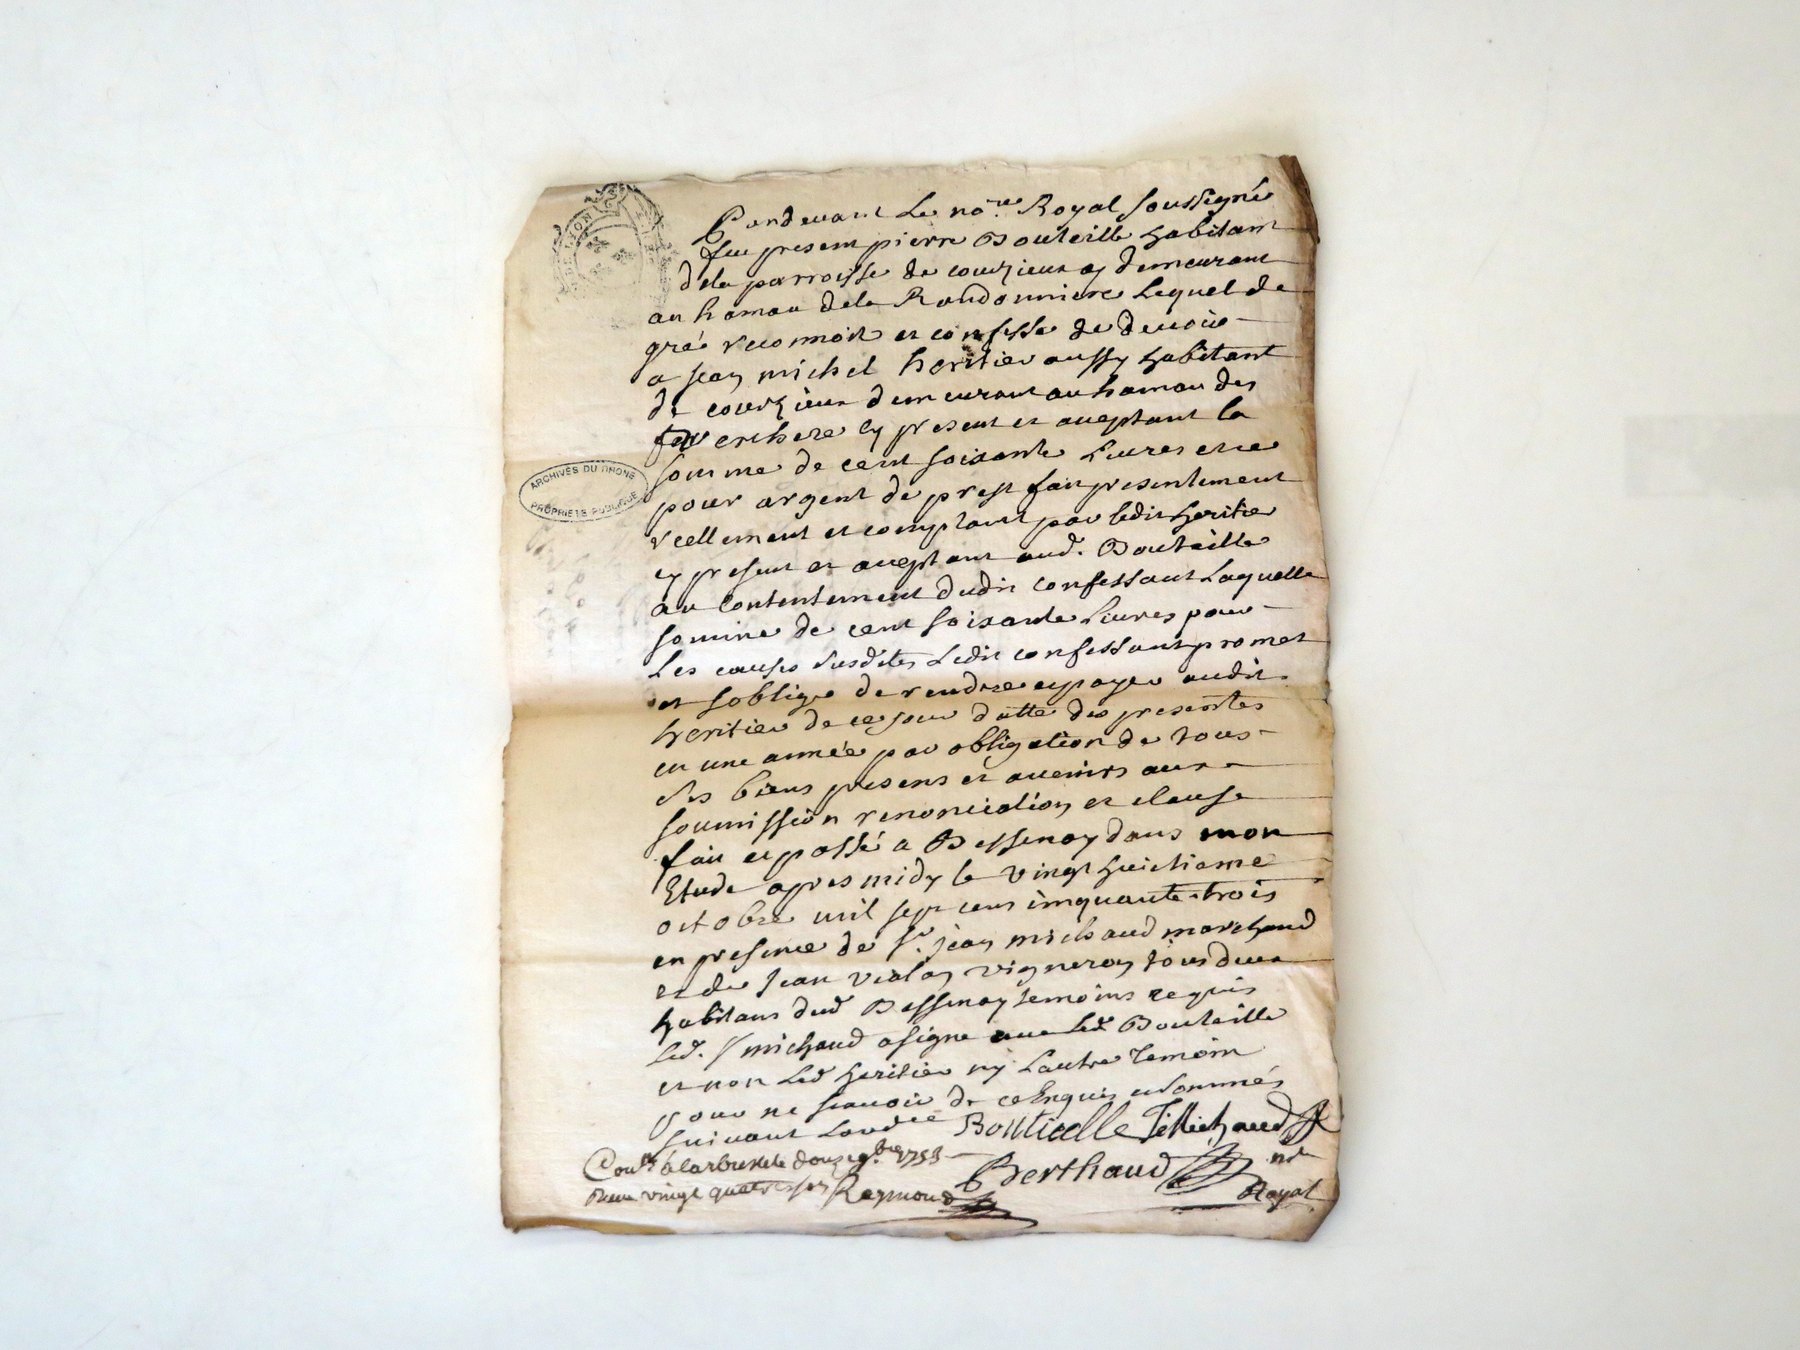 DE LYON
Pardevant Le no.re Royal soussigné
fut present pierre Bouteille habitant
dela parroisse de courzieux y demeurant
au hamau dela Randonniere Lequel de
gré reconnoit et confesse de devoir
a jean michel heritier aussy habitant
de courzieux demeurant au hamau des
cy present et aceptant la
somme de cent soixante Livres et ce
pour argent de prest fait presentement
reellement et comptant par ledit heritier
cy present et aceptant aud. Bouteille
au Contentement dudit confessant Laquelle
somme de cent soixante Livres pour
Les causes susdites Ledit confessant promet
et soblige de rendre et payer audit
heritier de ce jour datte des presentes
en une année par obligation de tous
ses biens presens et avenirs aux
soumission renonciation et clause
fait et passé a Bessenay dans mon
Etude apres midy le vingt huictieme
octobre mil sept cens cinquante trois
en presence de Sr. jean michaud marchand
et de Jean vialon vigneron tous deux
habitans dud Bessenay temoins requis
Led. Sr michaud a signé avec Led Bouteille
et non Led heritier ny Lautre Temoin
pour ne scavoir de ce Enquis et sommés
suivant Lordce Boutielle JMichaud
Conllé à larbresle le douze 9.bre 1753
Reçu vingt quatre sols Raymond
Berthaud nre
Royal
ARCHIVES DU RHONE
PROPRIETE PUBLIQUE